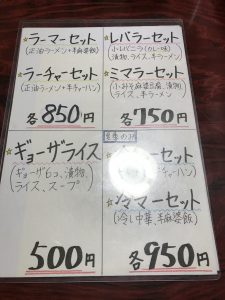 ☆ラーマーセット
(正油ラーメン・半麻婆飯)
☆ラーチャーセット
(正油ラーメン・半チャーハン)
各850円
☆レバラーセット
(小レバニラ(カレー味)
漬物、ライス、半ラーメン)
☆ミマラーセット
(小みそ麻婆豆腐、漬物
ライス、半ラーメン)
各750円
☆ギョーザライス
(ギョーザ6コ、漬物
ライス、スープ)
500円
夏季のみ
ーセット
ーハン)
☆冷マーセット
(冷し中華、半麻婆飯)
各950円